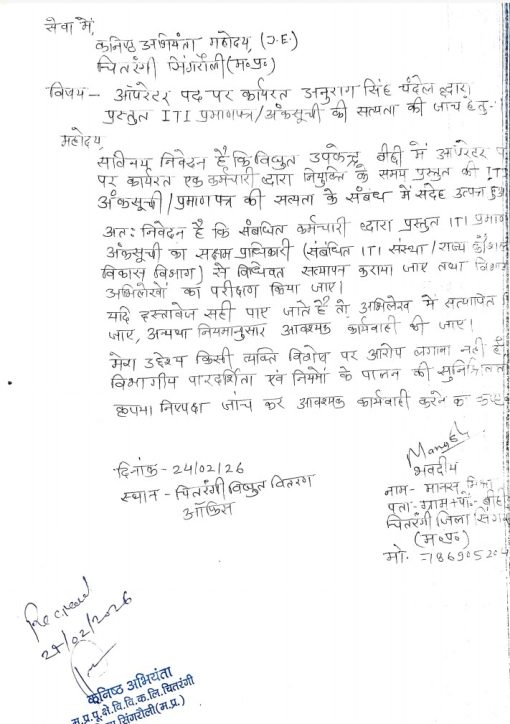 सेवा में,
कनिष्ठ अभियंता महोदय, (J.E.)
चितरंगी सिंगरौली (म०प्र०)
विषय - ऑपरेटर पद पर कार्यरत अनुराग सिंह चंदेल द्वारा
प्रस्तुत ITI प्रमाणपत्र/अंकसूची की सत्यता की जांच हेतु-
महोदय,
सविनय निवेदन है कि विद्युत उपकेन्द्र में ऑपरेटर
पर कार्यरत एक कर्मचारी द्वारा नियुक्ति के समय प्रस्तुत की ITI
अंकसूची/प्रमाण पत्र की सत्यता के संबंध में संदेह उत्पन्न
अतः निवेदन है कि संबंधित कर्मचारी द्वारा प्रस्तुत ITI
अंकसूची का सक्षम प्राधिकारी (संबंधित ITI संस्था/राज्य
विकास विभाग) से विधिवत सत्यापन कराया जाए तथा
अभिलेखों का परीक्षण किया जाए।
यदि दस्तावेज सही पाए जाते है तो अभिलेख में सत्यापित
जाए, अन्यथा नियमानुसार आवश्यक कार्यवाही की जाए।
मेरा उद्देश्य किसी व्यक्ति विशेष पर आरोप लगाना नहीं है
विभागीय पारदर्शिता एवं नियमों के पालन की
कृपया निष्पक्ष जांच कर आवश्यक कार्यवाही करने
भवदीय
दिनांक - 24/02/26
स्थान - चितरंगी विद्युत वितरण
ऑफिस
नाम - मानस
पता - ग्राम+पो०-
चितरंगी जिला
(म०प्र०)
मो०-
Received
02/2026
कनिष्ठ अभियंता
म.प्र.पू.क्षे.वि.वि.क.लि.चितरंगी
सिंगरौली(म.प्र.)